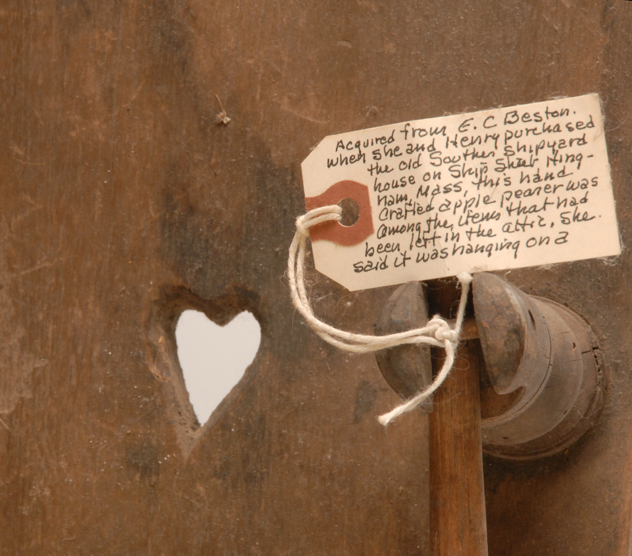 Acquired from E. C Beston.
when she and Henry purchased
the old Souther Shipyard
house on Ship Street Hing-
ham, Mass, this hand
crafted apple pearer was
among the items that had
been left in the attic, She.
said it was hanging on a